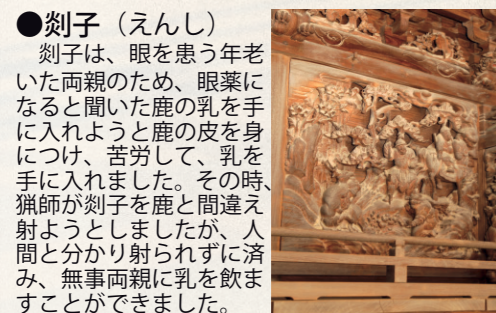 ●剡子（えんし）
　剡子は、眼を患う年老
いた両親のため、眼薬に
なると聞いた鹿の乳を手
に入れようと鹿の皮を身
につけ、苦労して、乳を
手に入れました。その時、
猟師が剡子を鹿と間違え
射ようとしましたが、人
間と分かり射られずに済
み、無事両親に乳を飲ま
すことができました。